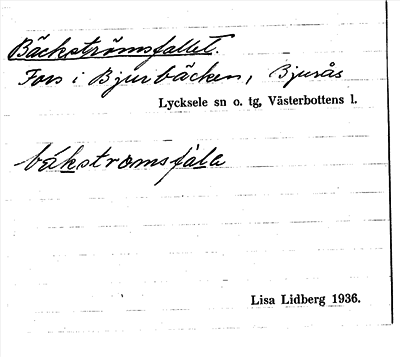 Bäckströmsfallet.
Fors i Bjurbäcken, Bjurås
Lycksele sn o. tg, Västerbottens l.
bäkstromsfala
Lisa Lidberg 1936.